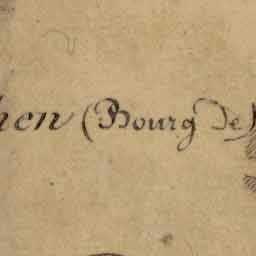 hen (Bourg de